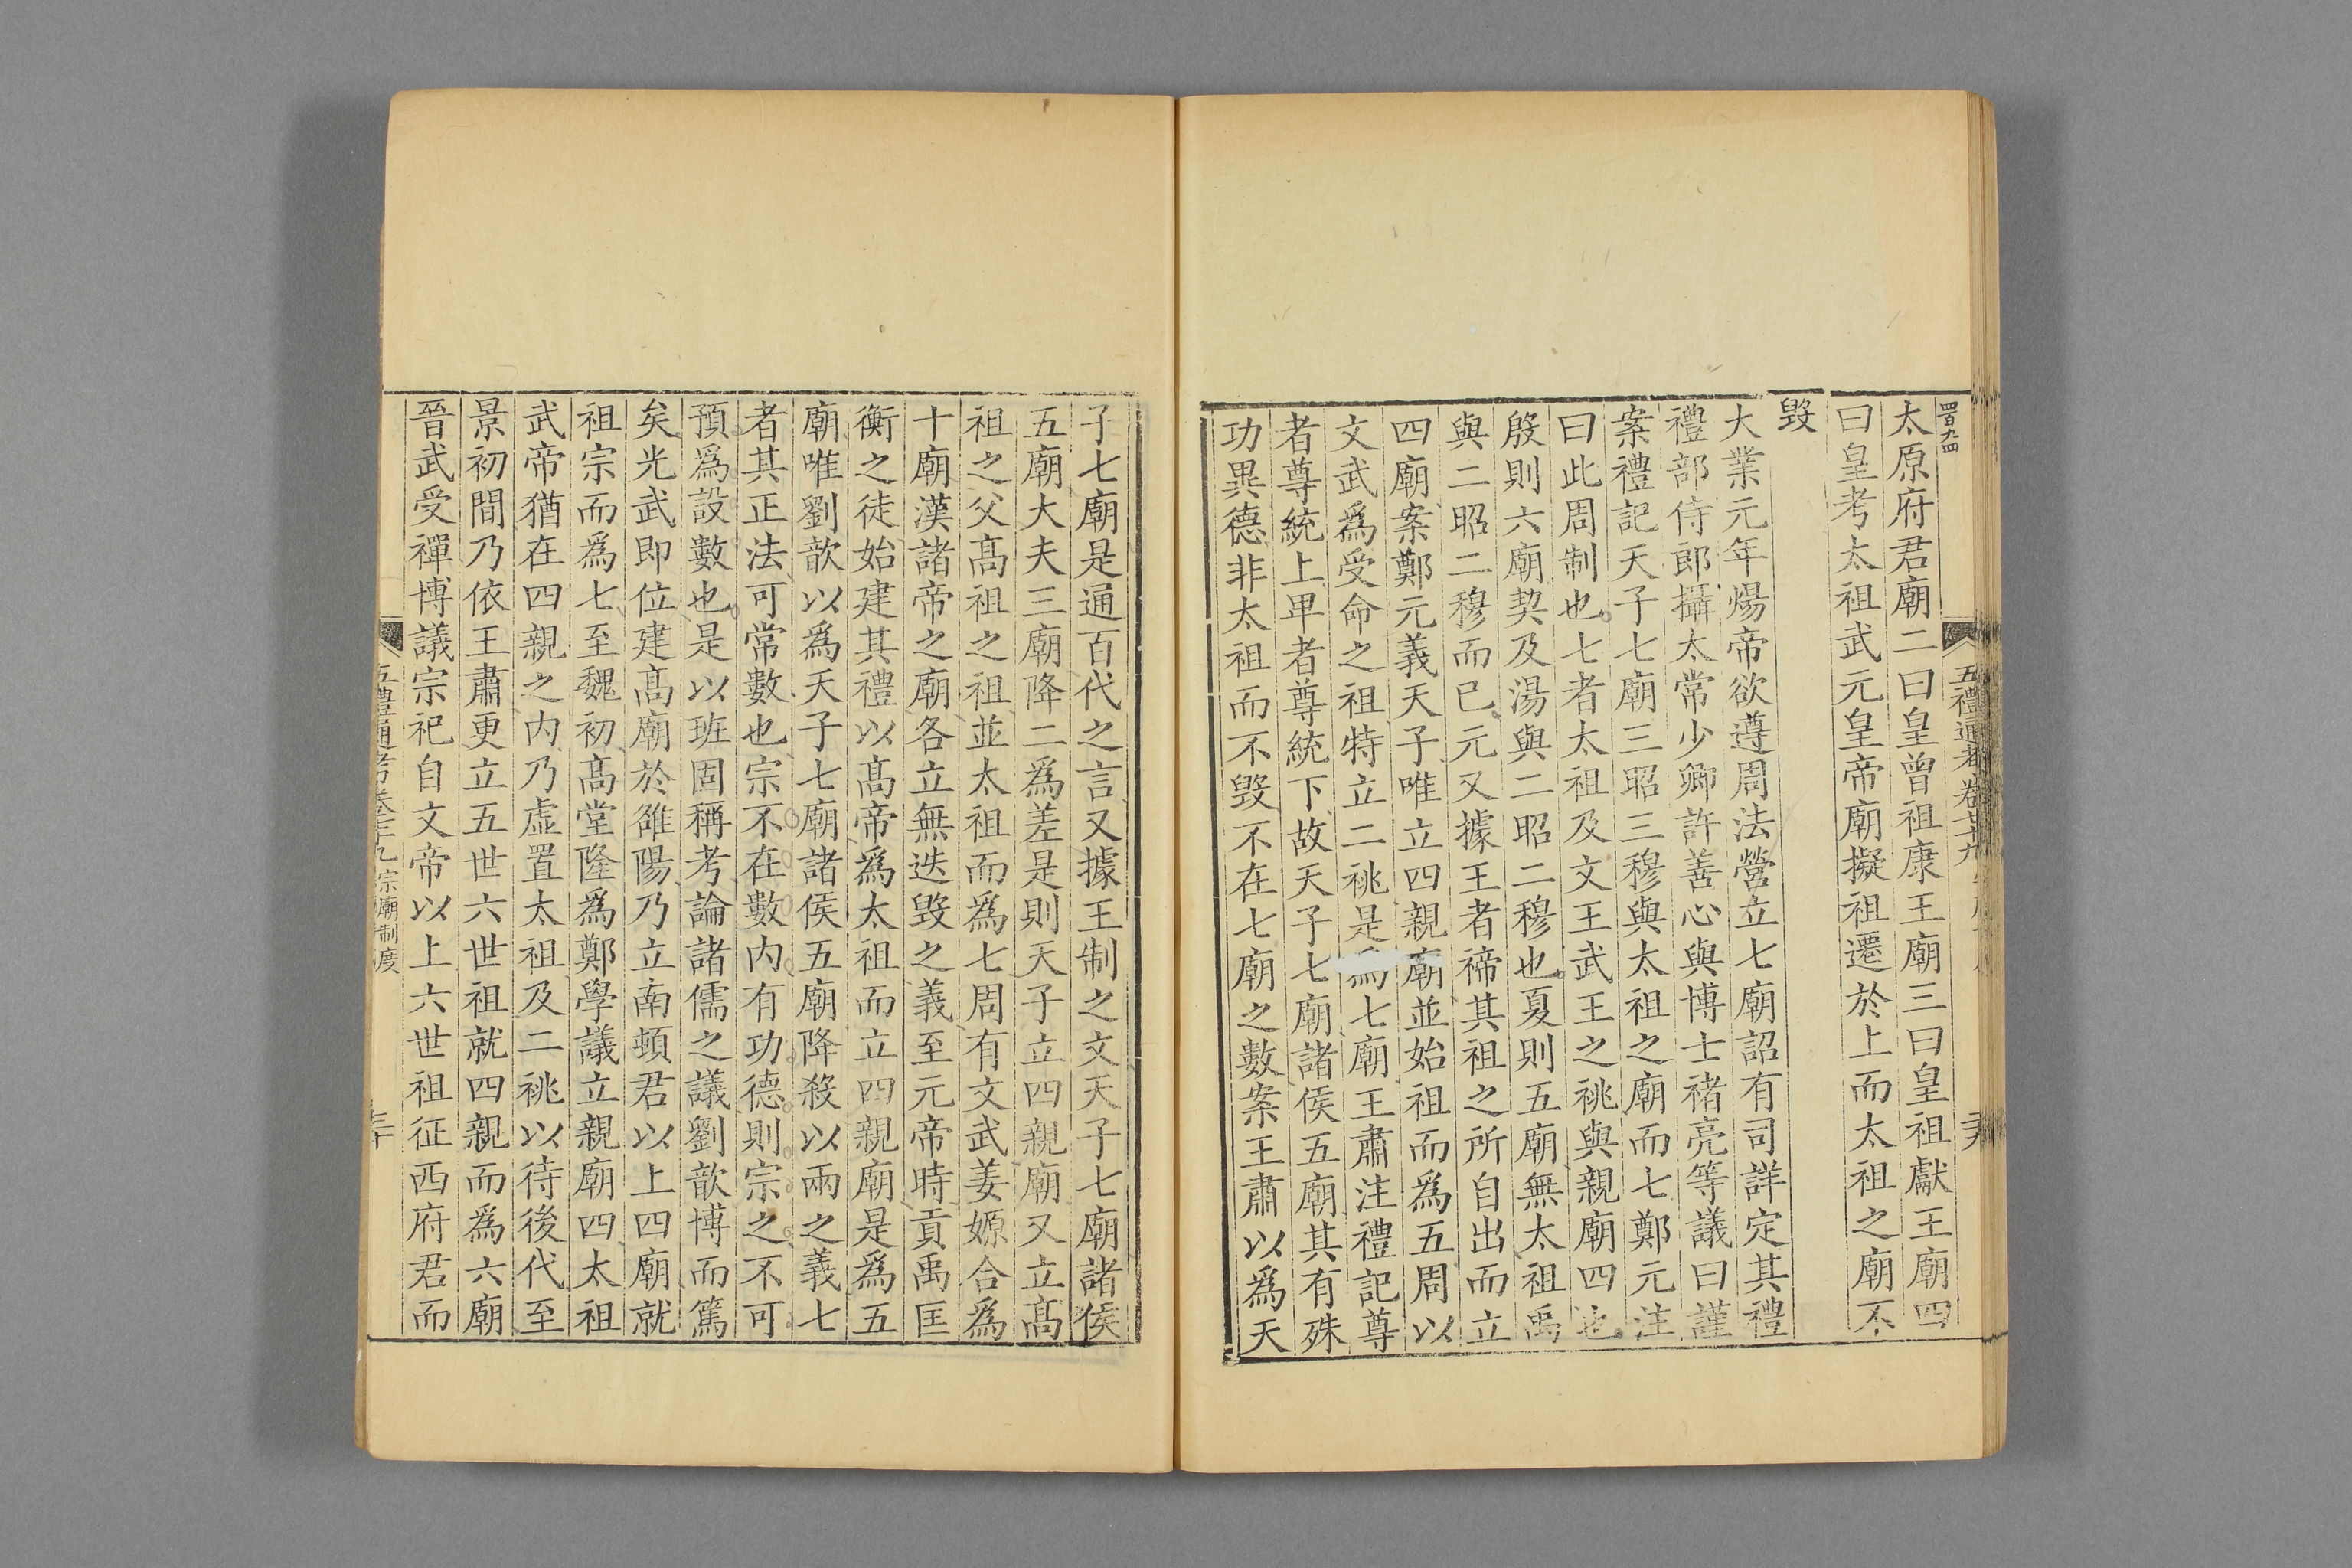 四百九四
太原府君廟二曰皇曾祖康王廟三曰皇祖獻王廟四
曰皇考太祖武元皇帝廟擬祖遷於上而太祖之廟不
毀
大業元年煬帝欲遵周法營立七廟詔有司詳定其禮
禮部侍郎攝太常少卿許善心與博士褚亮等議曰謹
案禮記天子七廟三昭三穆與太祖之廟而七鄭元注
曰此周制也七者太祖及文王武王之祧與親廟四也
殷則六廟契及湯與二昭二穆也夏則五廟無太祖禹
與二昭二穆而已元又據王者禘其祖之所自出而立
四廟案鄭元義天子唯立四親廟並始祖而為五周以
文武為受命之祖特立二祧是為七廟王肅注禮記尊
者尊統上卑者尊統下故天子七廟諸侯五廟其有殊
功異德非太祖而不毀不在七廟之數案王肅以為天
五禮通考卷
子七廟是通百代之言又據王制之文天子七廟諸侯
五廟大夫三廟降二為差是則天子立四親廟又立高
祖之父高祖之祖並太祖而為七周有文武姜嫄合為
十廟漢諸帝之廟各立無迭毀之義至元帝時貢禹匡
衡之徒始建其禮以高帝為太祖而立四親廟是為五
廟唯劉歆以為天子七廟諸侯五廟降殺以兩之義七
者其正法可常數也宗不在數內有功德則宗之不可
預為設數也是以班固稱考論諸儒之議劉歆博而篤
矣光武即位建高廟於雒陽乃立南頓君以上四廟就
祖宗而為七至魏初高堂隆為鄭學議立親廟四太祖
武帝猶在四親之內乃虛置太祖及二祧以待後代至
景初間乃依王肅更立五世六世祖就四親而為六廟
晉武受禪博議宗祀自文帝以上六世祖征西府君而
五禮通考卷 宗廟制度